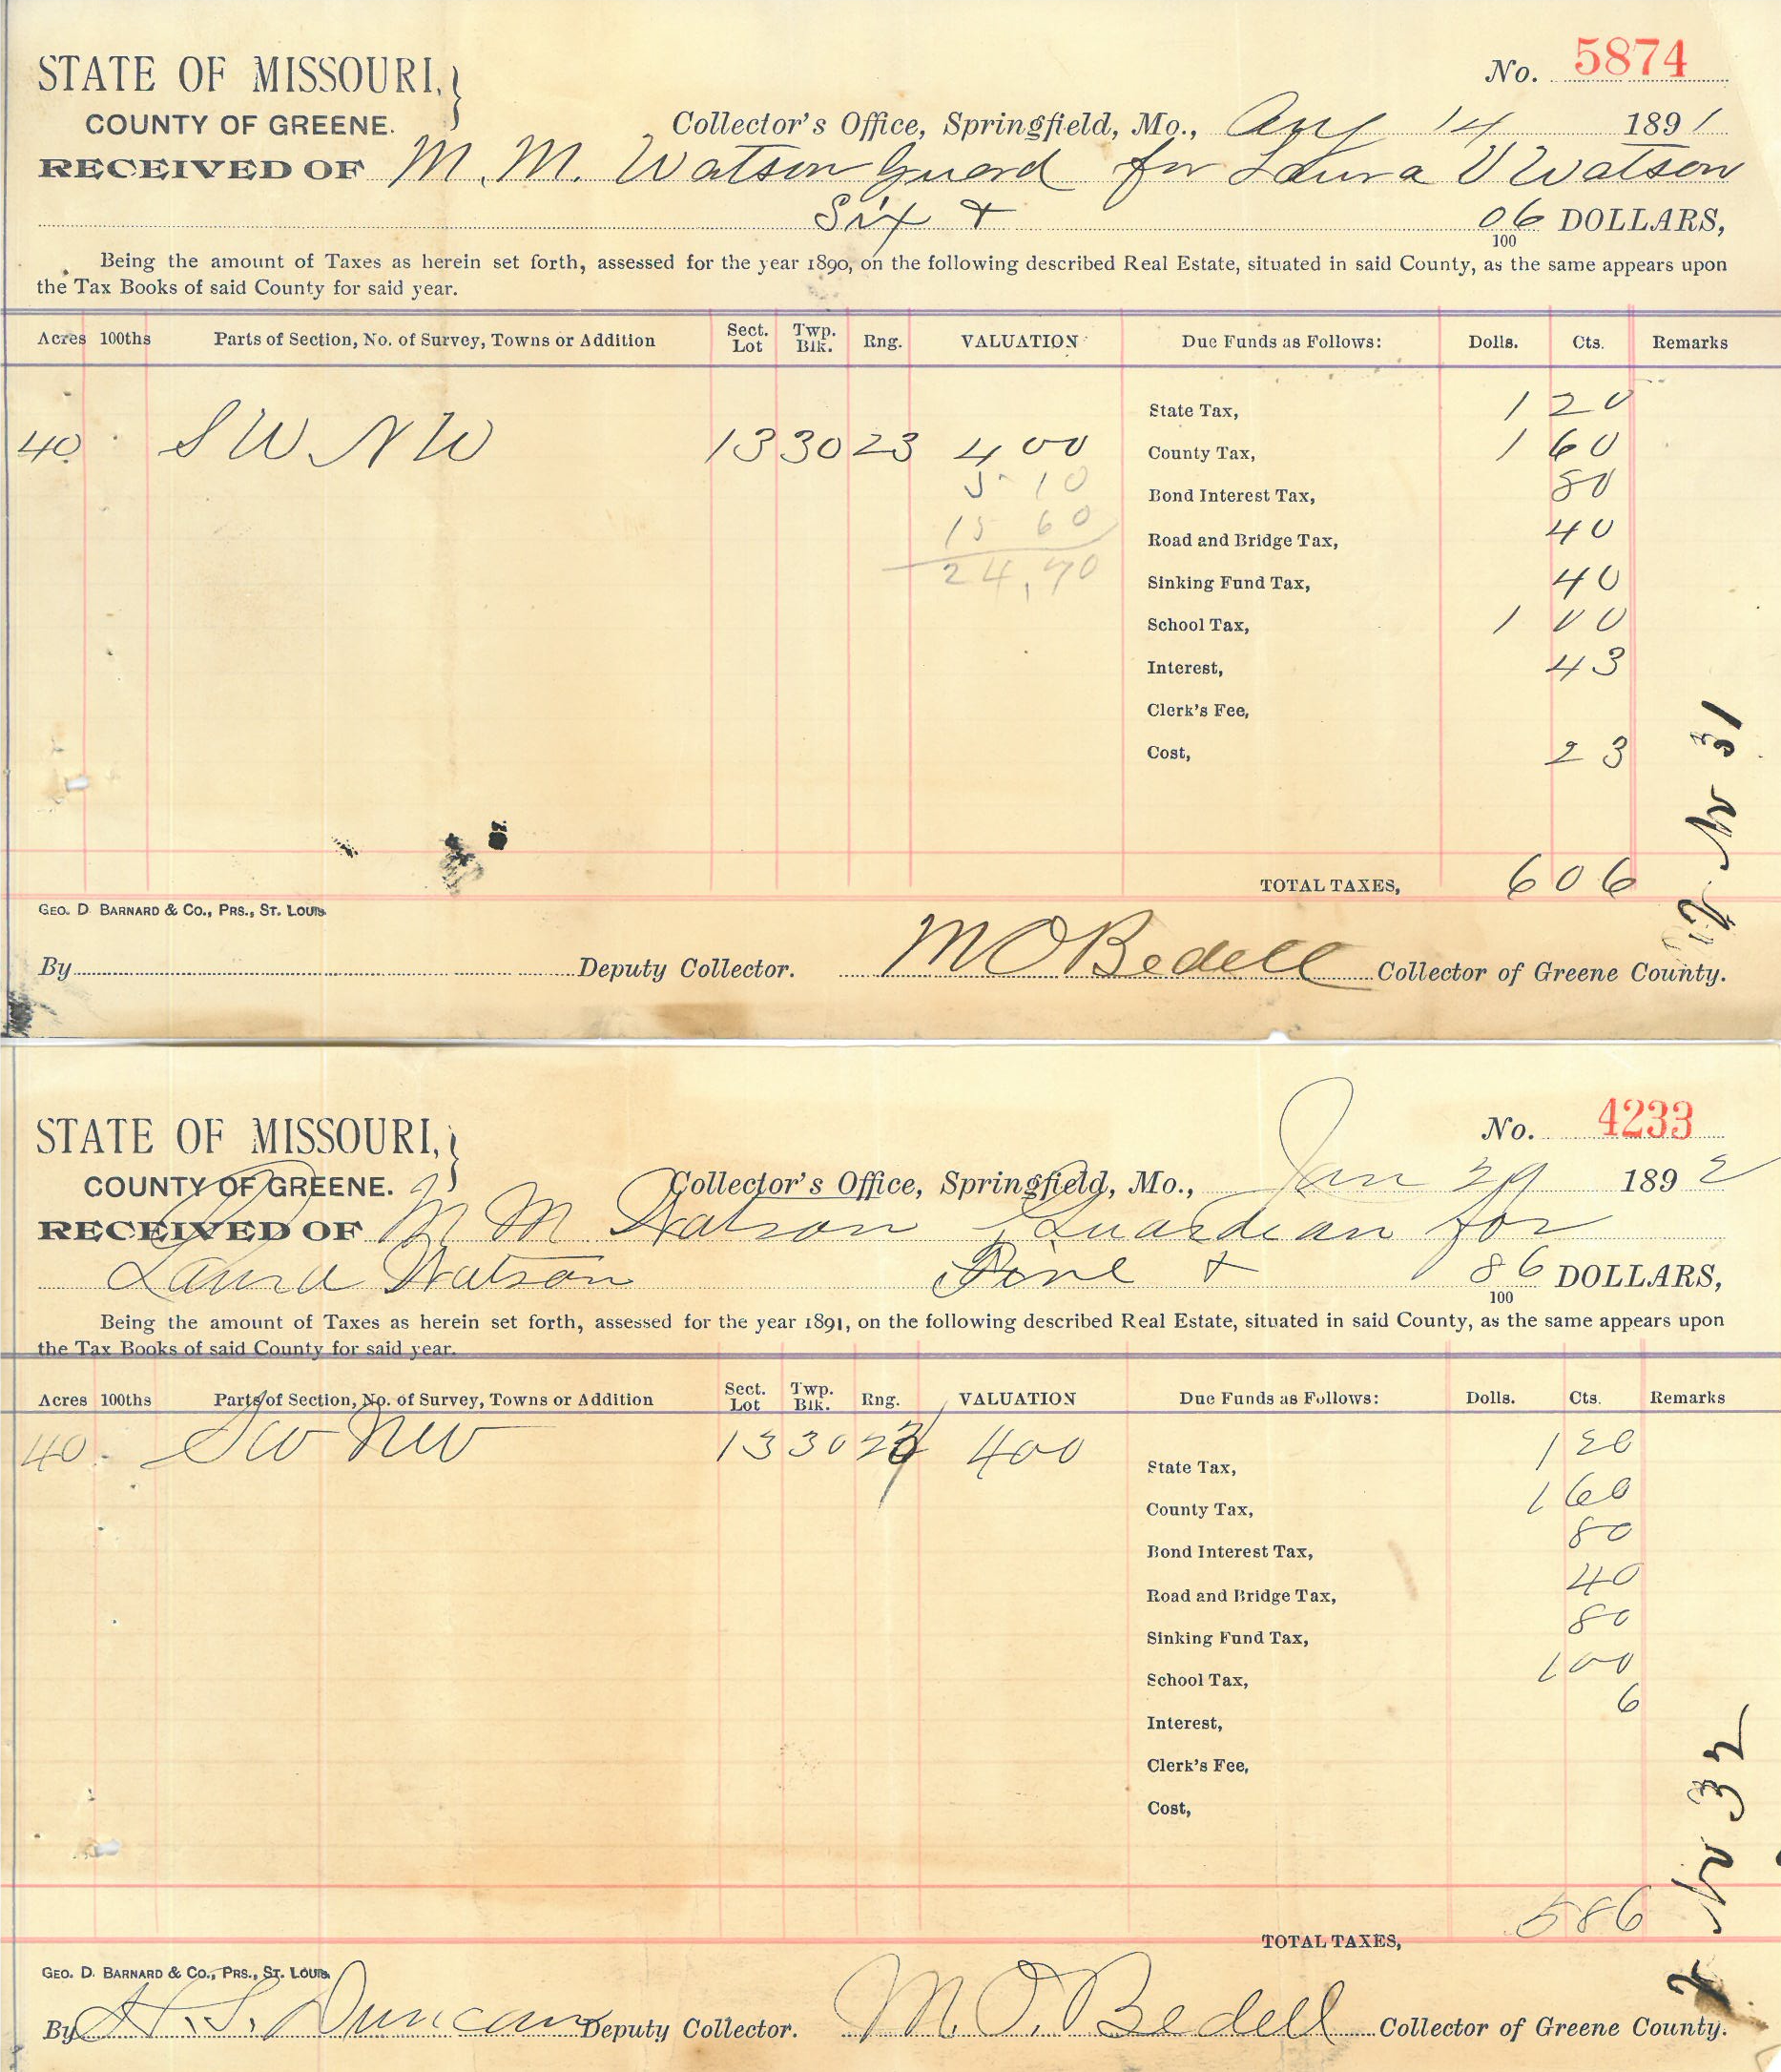 STATE OF MISSOURI,
No. 5874
COUNTY OF GREENE.
Collector's Office, Springfield, Mo., Aug 14 1891
RECEIVED OF M. M. Watson Guard for Laura V Watson
Six & 06/100 DOLLARS,
Being the amount of Taxes as herein set forth, assessed for the year 1890, on the following described Real Estate, situated in said County, as the same appears upon
the Tax Books of said County for said year.
Acres 100ths Parts of Section, No. of Survey, Towns or Addition Sect. Lot Twp. Blk. Rng. VALUATION Due Funds as Follows: Dolls. Cts. Remarks
State Tax, 1 20
40 SW NW 13 30 23 400 County Tax, 1 60
5 10 Bond Interest Tax, 80
15 60 Road and Bridge Tax, 40
24,70 Sinking Fund Tax, 40
School Tax, 1 00
Interest, 43
Clerk's Fee,
Cost, 23
No 31
TOTAL TAXES, 6 06
GEO. D. BARNARD & CO., PRS., ST. LOUIS
By Deputy Collector. M O Bedell Collector of Greene County.
STATE OF MISSOURI,
No. 4233
COUNTY OF GREENE.
Collector's Office, Springfield, Mo., Jan 29 1892
RECEIVED OF M M Watson Guardian for
Laura Watson Five & 86/100 DOLLARS,
Being the amount of Taxes as herein set forth, assessed for the year 1891, on the following described Real Estate, situated in said County, as the same appears upon
the Tax Books of said County for said year.
Acres 100ths Parts of Section, No. of Survey, Towns or Addition Sect. Lot Twp. Blk. Rng. VALUATION Due Funds as Follows: Dolls. Cts. Remarks
40 SW NW 13 30 23 400 State Tax, 1 20
County Tax, 1 60
Bond Interest Tax, 80
Road and Bridge Tax, 40
Sinking Fund Tax, 80
School Tax, 1 00
Interest, 6
Clerk's Fee,
Cost,
No 32
TOTAL TAXES, 5 86
GEO. D. BARNARD & CO., PRS., ST. LOUIS
By H. S. Duncan Deputy Collector. M. O. Bedell Collector of Greene County.